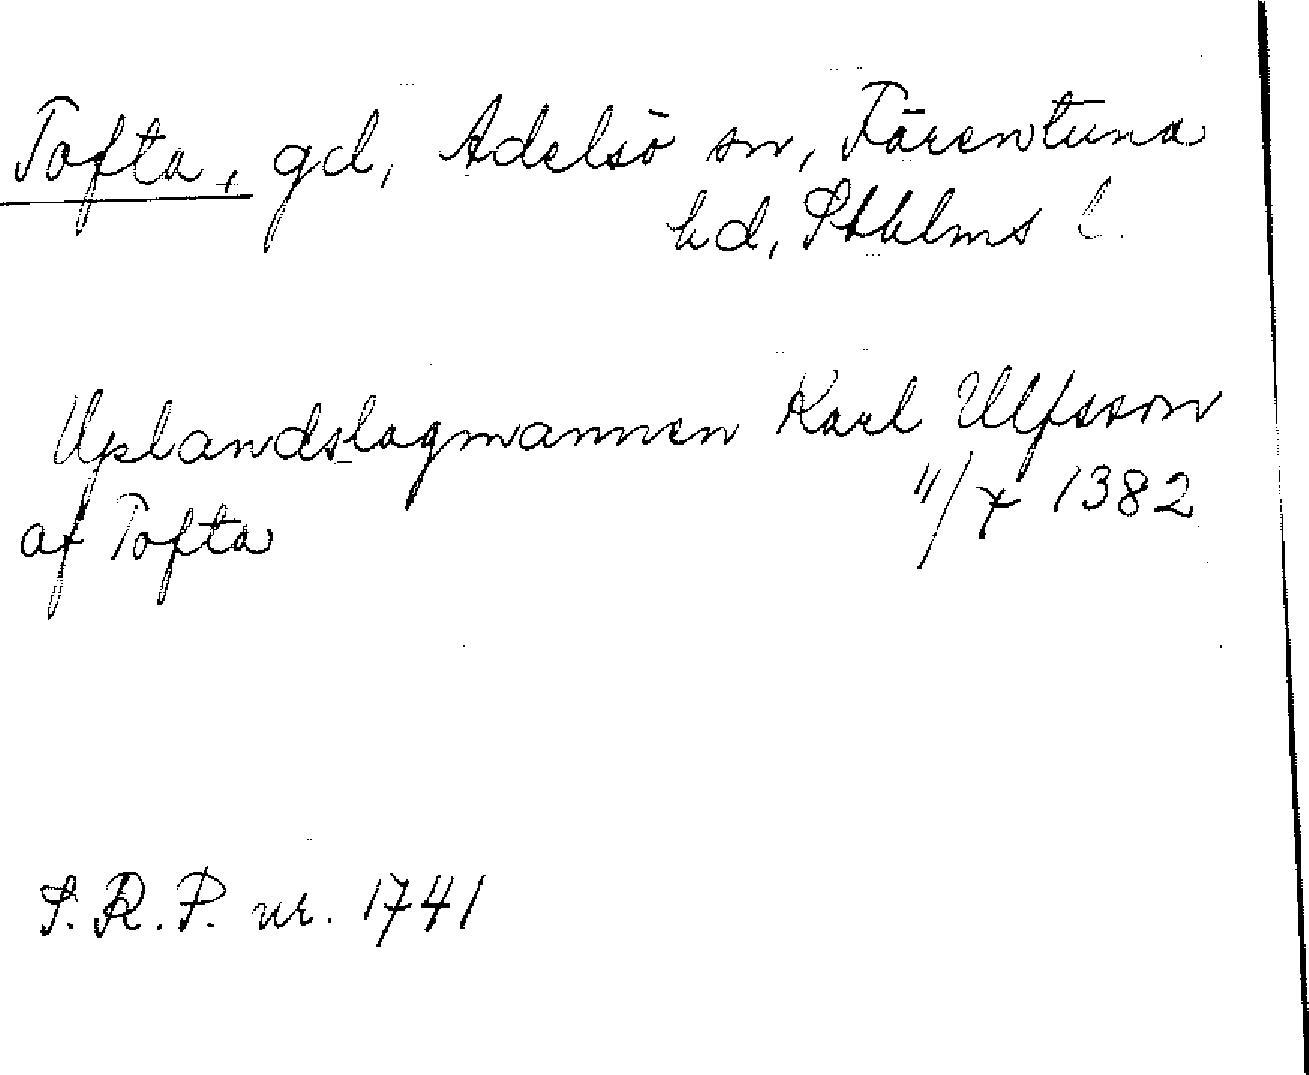 Tofta, gd, Adelsö sn, Färentuna
hd, Sthlms l.
Uplandslagmannen Karl Ulfsson
af Tofta 11/7 1382
S.R.P. nr. 1741